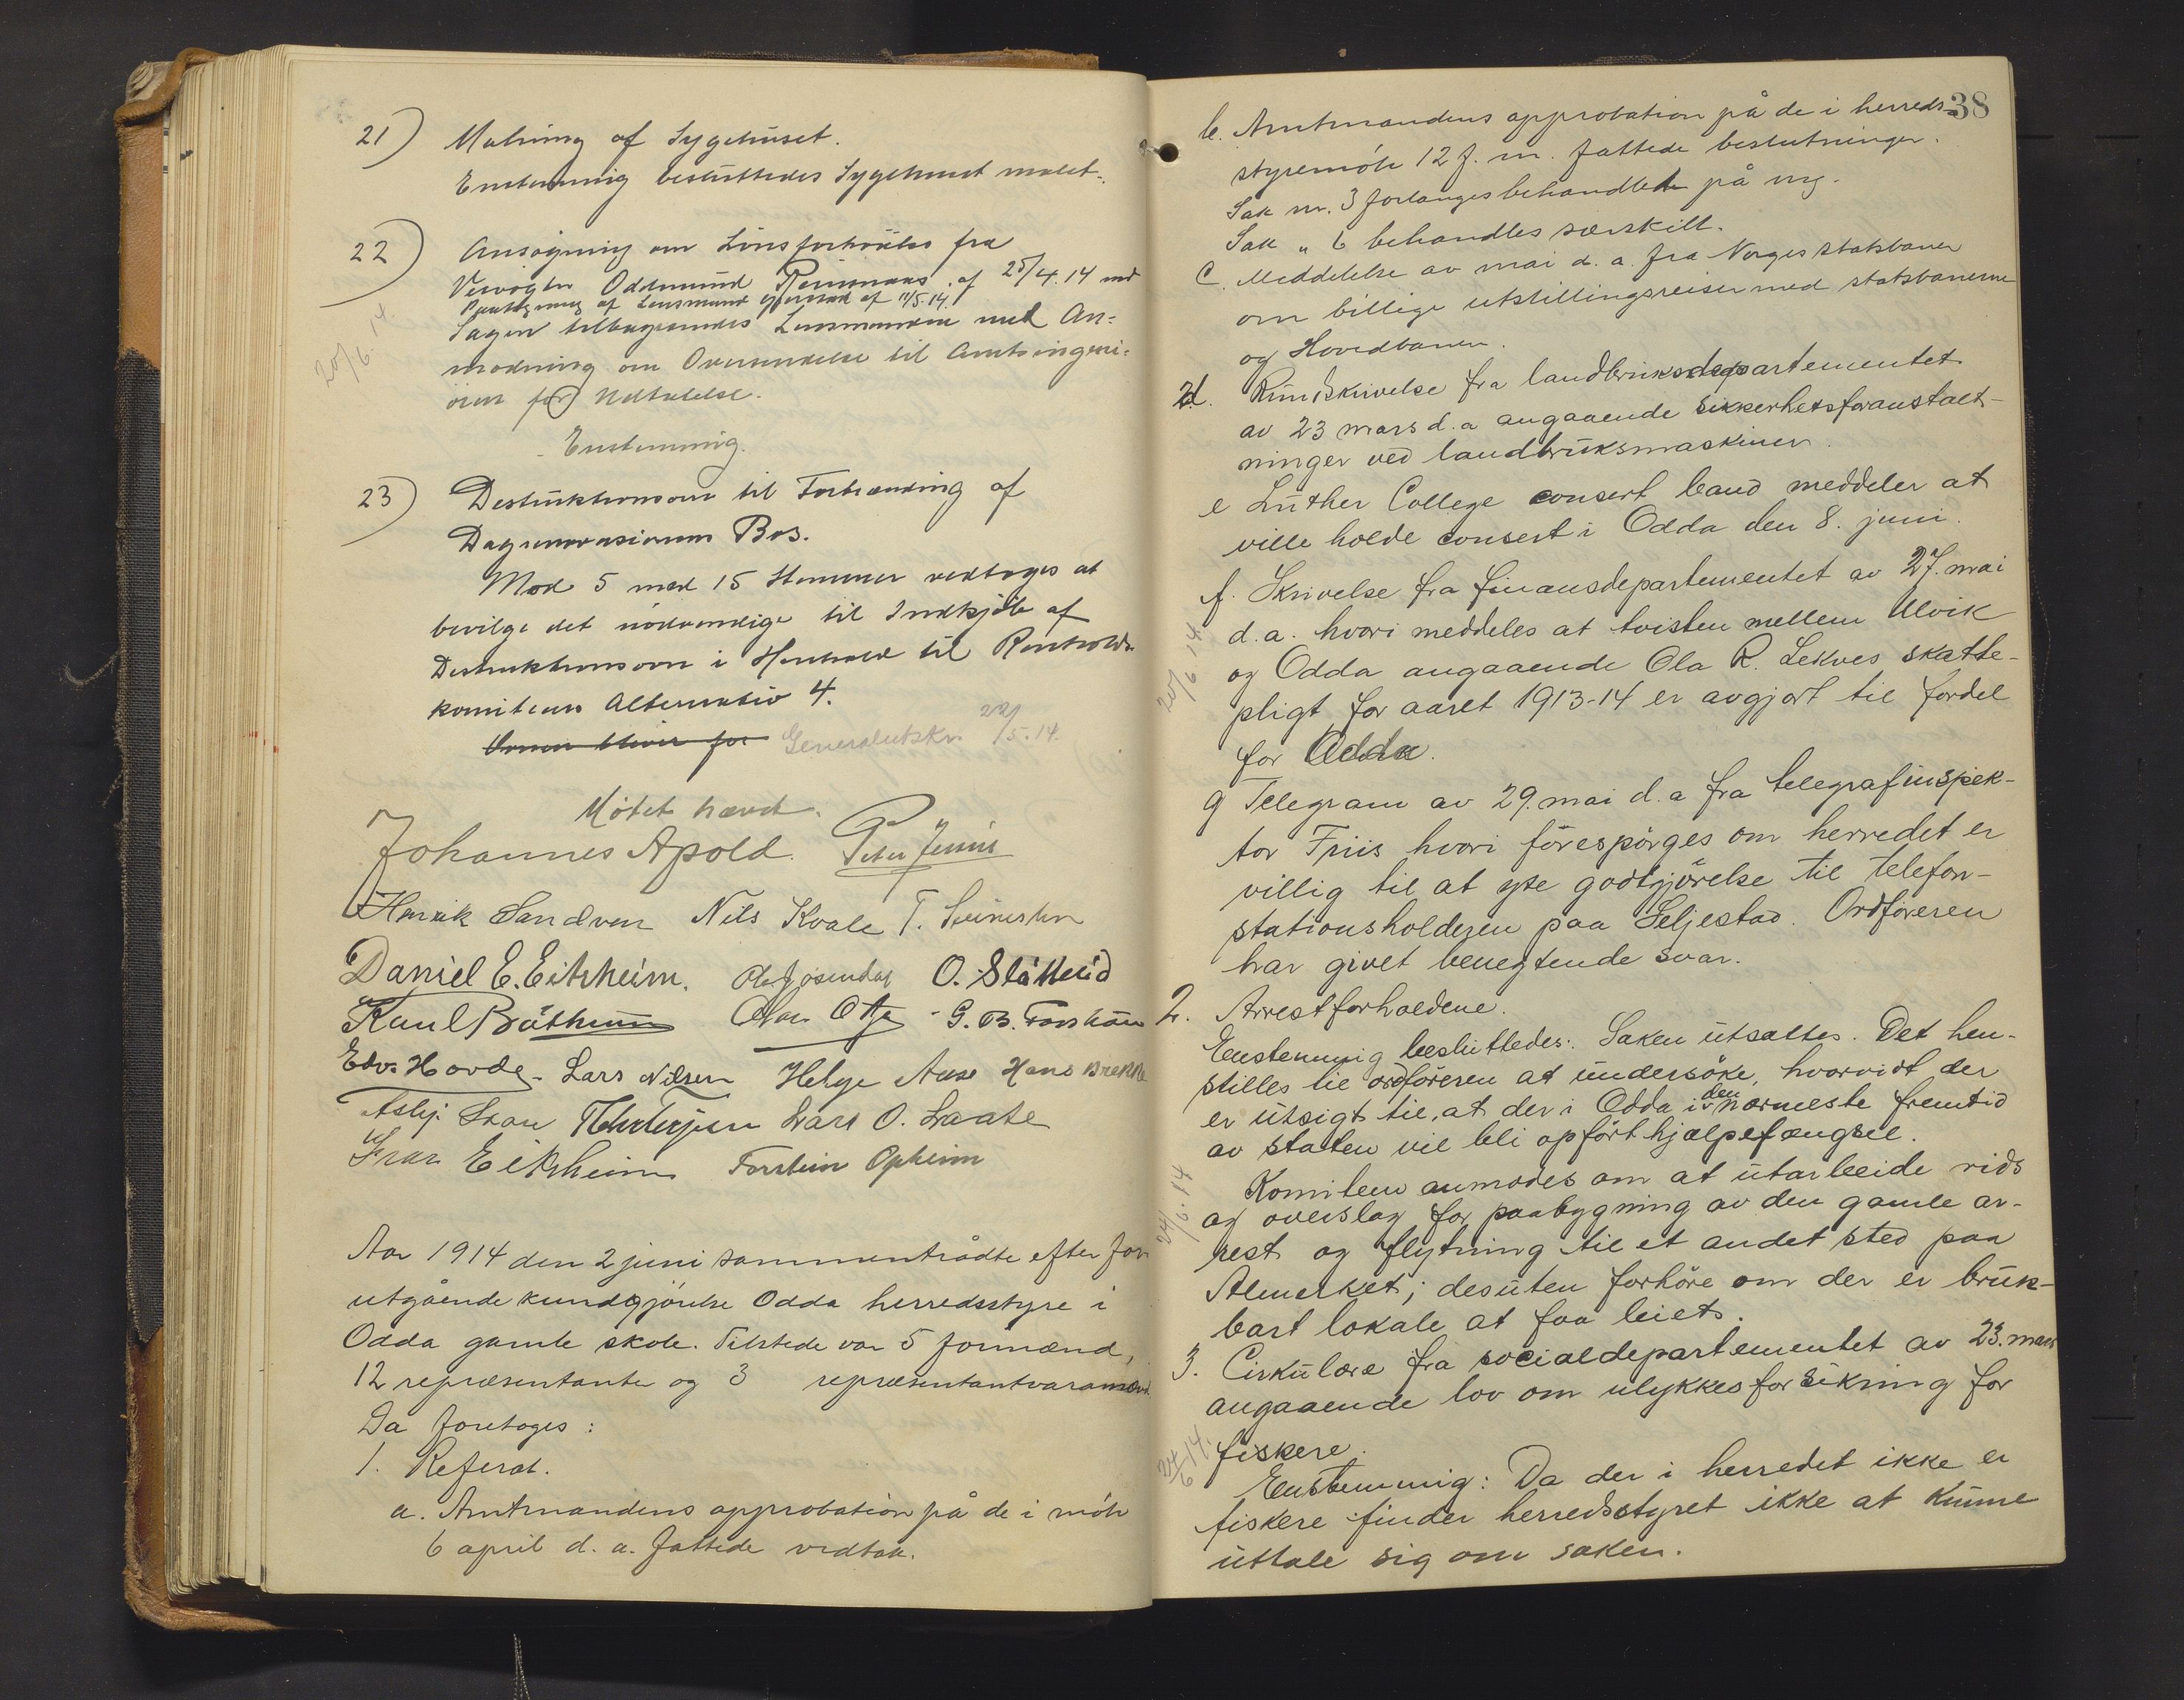 21) Malning af Sygehuset.
Enstemmig besluttedes Sygehuset malet.
22) Ansøgning om Lønsforhøielse fra
Veivogter Oddmund af 25/4.14 med
Paategning af Lensmand af 11/5.14.
Sagen tilbagesendes Lensmanden med An=
modning om Oversendelse til Amtsingeni=
øren for Udtalelse.
20/6.14.
Enstemmig.
23) Destruktionsovn til Forbrænding af
Dagrenovasionen Bos.
Mod 5 mod 15 Stemmer vedtoges at
bevilge det nødvendige til Indkjøb af
Destruktionsovn i Henhold til Renholds
komiteens Alternativ 4.
Ovnen bliver for Generalutskr. 22/5.14.
Møtet hævet.
Johannes Apold. Peter
Henrik Sandven Nils Kvale T.
Daniel E. Eitrheim. O. Jøsendal O. Slåtteid
Karl Olav G. B.
Edv. Hovde Lars Nilsen Helge Aase Hans Brekke
Asbj. Lars O. Laate
Eitrheim Torstein Opheim
Aar 1914 den 2 juni sammentrådte efter for
utgående kundgjørelse Odda herredsstyre i
Odda gamle skole. Tilstede var 5 formænd,
12 repræsentanter og 3 repræsentantvaramænd
Da foretoges:
1. Referat.
a. Amtmandens approbation på de i møte
6 april d. a. fattede vedtak.
38
b. Amtmandens approbation på de i herreds-
styremöte 12 f. m. fattede beslutninger.
Sak nr. 3 forlanges behandlet på ny.
Sak " 6 behandles særskilt.
c. Meddelelse av mai d. a. fra Norges statsbaner
om billige utstillingsreiser med statsbanerne
og Hovedbanen.
d. Rundskrivelse fra landbruksdepartementet
av 23 mars d. a angaaende sikkerhetsforanstalt-
ninger ved landbruksmaskiner.
e Luther College consert band meddeler at
ville holde consert i Odda den 8. juni.
f. Skrivelse fra finansdepartementet av 27. mai
d. a. hvori meddeles at tvisten mellem Ulvik
20/6 14
og Odda angaaende Ola R. Lekves skatte-
pligt for aaret 1913-14 er avgjort til fordel
for Odda.
g Telegram av 29. mai d. a fra telegrafinspek-
tør Friis hvori förespörges om herredet er
villig til at yde godtgjörelse til telefon-
stationsholderen paa Seljestad. Ordföreren
har givet benegtende svar.
2. Arrestforholdene.
Enstemmig besluttedes: Saken utsattes. Det hen-
stilles til ordföreren at undersöke, hvorvidt der
er utsigt til, at der i Odda i den nærmeste fremtid
av staten vil bli opfört hjælpefængsel.
24/6.14
Komiteen anmodes om at utarbeide rids
og overslag for paabygning av den gamle ar-
rest og flytning til et andet sted paa
Almerket; desuten forhöre om der er bruk-
bart lokale at faa leiet.
3. Cirkulære fra socialdepartementet av 23. mars
angaaende lov om ulykkesforsikring for
fiskere.
24/6 14.
Enstemmig: Da der i herredet ikke er
fiskere finder herredsstyret ikke at kunne
uttale sig om saken.